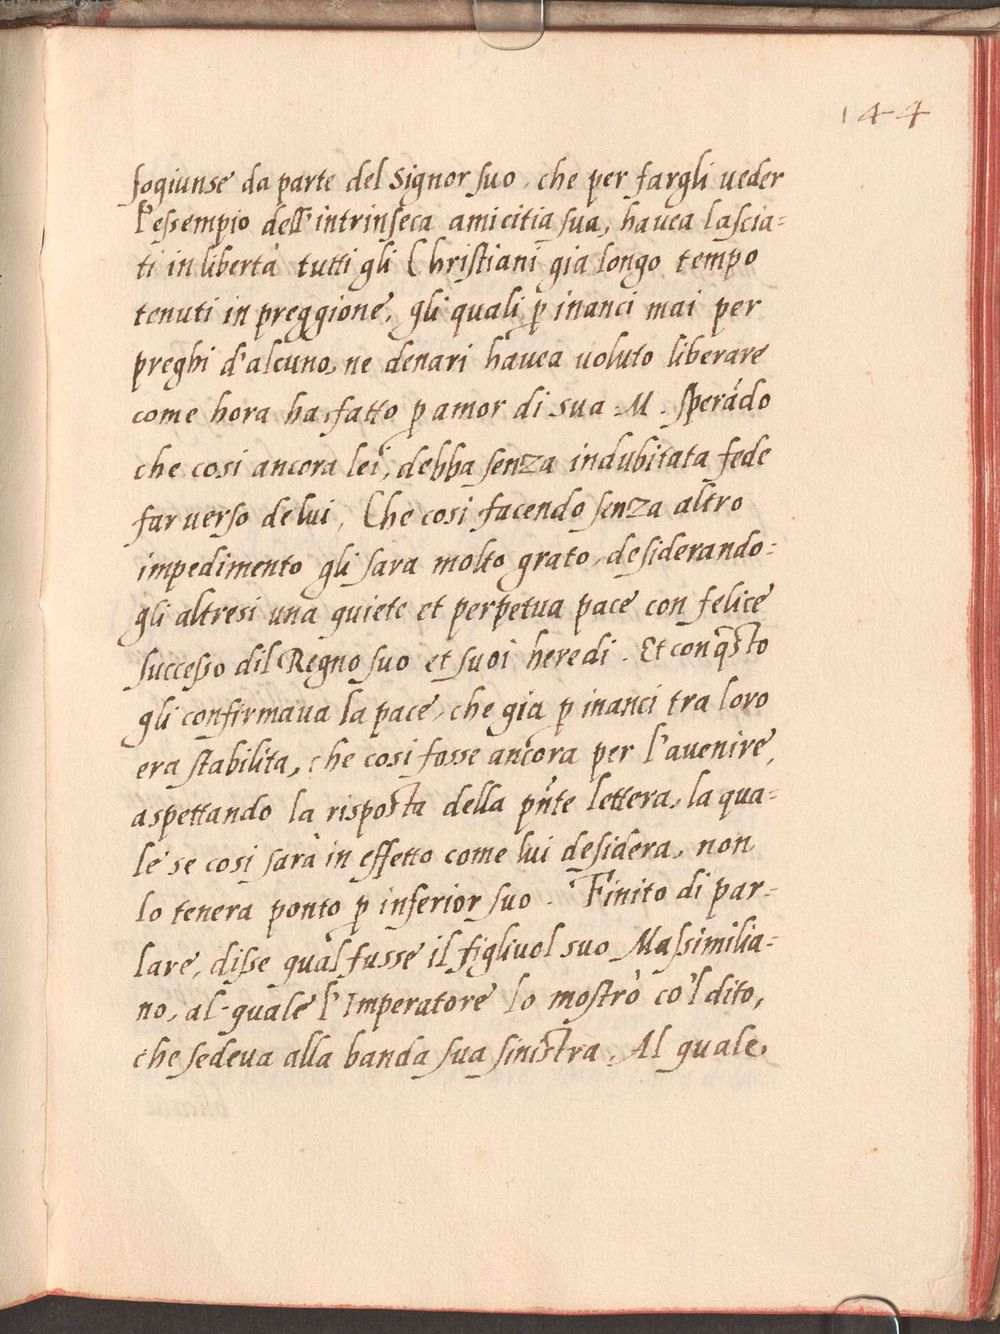 144
sogiunse da parte del Signor suo, che per fargli veder
l'essempio dell'intrinseca amicitia sua, havea lascia=
ti in libertà tutti gli Christiani gia longo tempo
tenuti in preggione, gli quali p inanci mai per
preghi d'alcuno, ne denari havea voluto liberare
come hora ha fatto p amor di sua .M. sperãdo
che cosi ancora lei, debba senza indubitata fede
far verso de lui, Che cosi facendo senza altro
impedimento gli sara molto grato, desiderando=
gli altresi una quiete et perpetua pace con felice
successo dil Regno suo et suoi heredi. Et con q̃sto
gli confirmava la pace, che gia p inanci tra loro
era stabilita, che cosi fosse ancora per l'avenire,
aspettando la risposta della pñte lettera, la qua=
le se cosi sarà in effetto come lui desidera, non
lo tenera ponto p inferior suo. Finito di par=
lare, disse qual fusse il figliuol suo Massimilia=
no, al quale l'Imperatore lo mostrò co'l dito,
che sedeva alla banda sua sinistra. Al quale